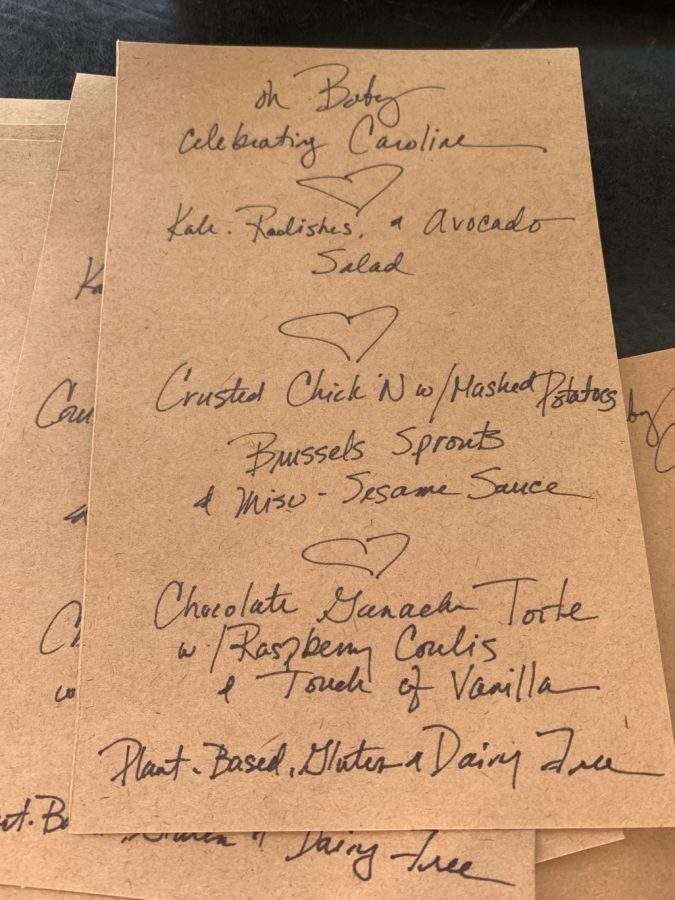 oh Baby
Celebrating Caroline
Kale, Radishes, & Avocado
Salad
Crusted Chick'N w/Mashed Potatoes
Brussels Sprouts
& Miso-Sesame Sauce
Chocolate Ganache Torte
w/Raspberry Coulis
& Touch of Vanilla
Plant-Based, Gluten & Dairy Free
Gluten & Dairy Free